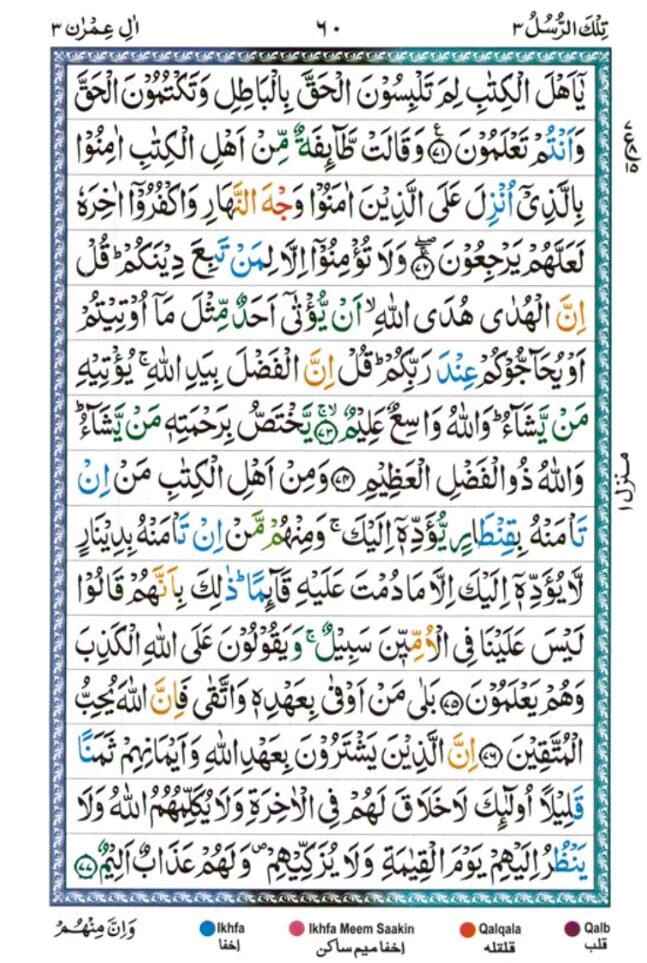 تِلْكَ الرُّسُلُ ٣ ٦٠ اٰلِ عِمْرٰن ٣
يٰۤاَهْلَ الْكِتٰبِ لِمَ تَلْبِسُوْنَ الْحَقَّ بِالْبَاطِلِ وَتَكْتُمُوْنَ الْحَقَّ
وَاَنْتُمْ تَعْلَمُوْنَ ﴿٧١﴾ وَقَالَتْ طَّآئِفَةٌ مِّنْ اَهْلِ الْكِتٰبِ اٰمِنُوْا
بِالَّذِيْۤ اُنْزِلَ عَلَى الَّذِيْنَ اٰمَنُوْا وَجْهَ النَّهَارِ وَاكْفُرُوْۤا اٰخِرَهٗ
لَعَلَّهُمْ يَرْجِعُوْنَ ﴿٧٢﴾ وَلَا تُؤْمِنُوْۤا اِلَّا لِمَنْ تَبِعَ دِيْنَكُمْ ؕ قُلْ
اِنَّ الْهُدٰى هُدَى اللّٰهِ ۙ اَنْ يُّؤْتٰۤى اَحَدٌ مِّثْلَ مَاۤ اُوْتِيْتُمْ
اَوْ يُحَآجُّوْكُمْ عِنْدَ رَبِّكُمْ ؕ قُلْ اِنَّ الْفَضْلَ بِيَدِ اللّٰهِ ۚ يُؤْتِيْهِ
مَنْ يَّشَآءُ ؕ وَاللّٰهُ وَاسِعٌ عَلِيْمٌ ﴿٧٣﴾ يَّخْتَصُّ بِرَحْمَتِهٖ مَنْ يَّشَآءُ ؕ
وَاللّٰهُ ذُو الْفَضْلِ الْعَظِيْمِ ﴿٧٤﴾ وَمِنْ اَهْلِ الْكِتٰبِ مَنْ اِنْ
تَاْمَنْهُ بِقِنْطَارٍ يُّؤَدِّهٖۤ اِلَيْكَ ۚ وَمِنْهُمْ مَّنْ اِنْ تَاْمَنْهُ بِدِيْنَارٍ
لَّا يُؤَدِّهٖۤ اِلَيْكَ اِلَّا مَا دُمْتَ عَلَيْهِ قَآئِمًا ؕ ذٰلِكَ بِاَنَّهُمْ قَالُوْا
لَيْسَ عَلَيْنَا فِى الْاُمِّيّٖنَ سَبِيْلٌ ۚ وَيَقُوْلُوْنَ عَلَى اللّٰهِ الْكَذِبَ
وَهُمْ يَعْلَمُوْنَ ﴿٧٥﴾ بَلٰى مَنْ اَوْفٰى بِعَهْدِهٖ وَاتَّقٰى فَاِنَّ اللّٰهَ يُحِبُّ
الْمُتَّقِيْنَ ﴿٧٦﴾ اِنَّ الَّذِيْنَ يَشْتَرُوْنَ بِعَهْدِ اللّٰهِ وَاَيْمَانِهِمْ ثَمَنًا
قَلِيْلًا اُولٰٓئِكَ لَا خَلَاقَ لَهُمْ فِى الْاٰخِرَةِ وَلَا يُكَلِّمُهُمُ اللّٰهُ وَلَا
يَنْظُرُ اِلَيْهِمْ يَوْمَ الْقِيٰمَةِ وَلَا يُزَكِّيْهِمْ ۪ وَلَهُمْ عَذَابٌ اَلِيْمٌ ﴿٧٧﴾
منزل ١
وَاِنَّ مِنْهُمْ
Ikhfa Ikhfa Meem Saakin Qalqala Qalb
اخفا اخفا ميم ساكن قلقله قلب